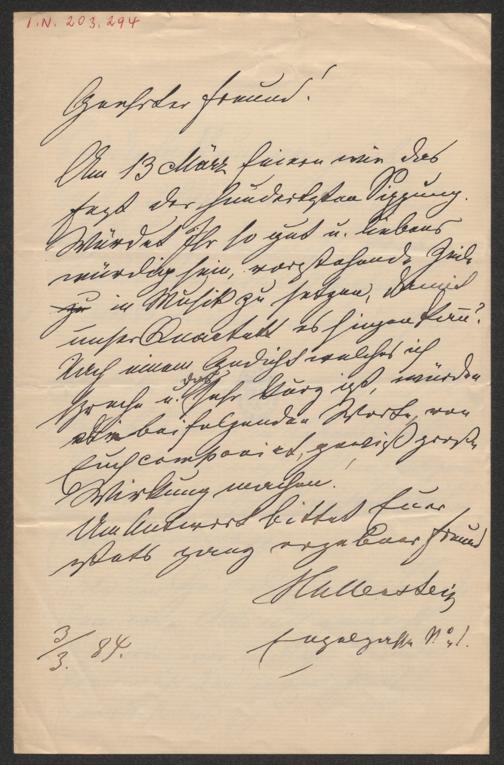 I.N. 203.294
Geehrter Freund!
Am 13 März feiern wir das
Fest der hundertsten Sippung.
Würdet Ihr so gut u. liebens
würdig sein, vorstehende Zeile
in Musik zu setzen, damit
unser Quartett es singen kann?
Nach einem Gedicht welches ich
spreche u. das sehr kurz ist, würden
die beifolgenden Worte, von
Euch componirt, gewiß große
Wirkung machen!
Um Antwort bittet Euer
stets ganz ergebener Freund
Hallenstein
3/3. 84.
Engelgasse No 1.